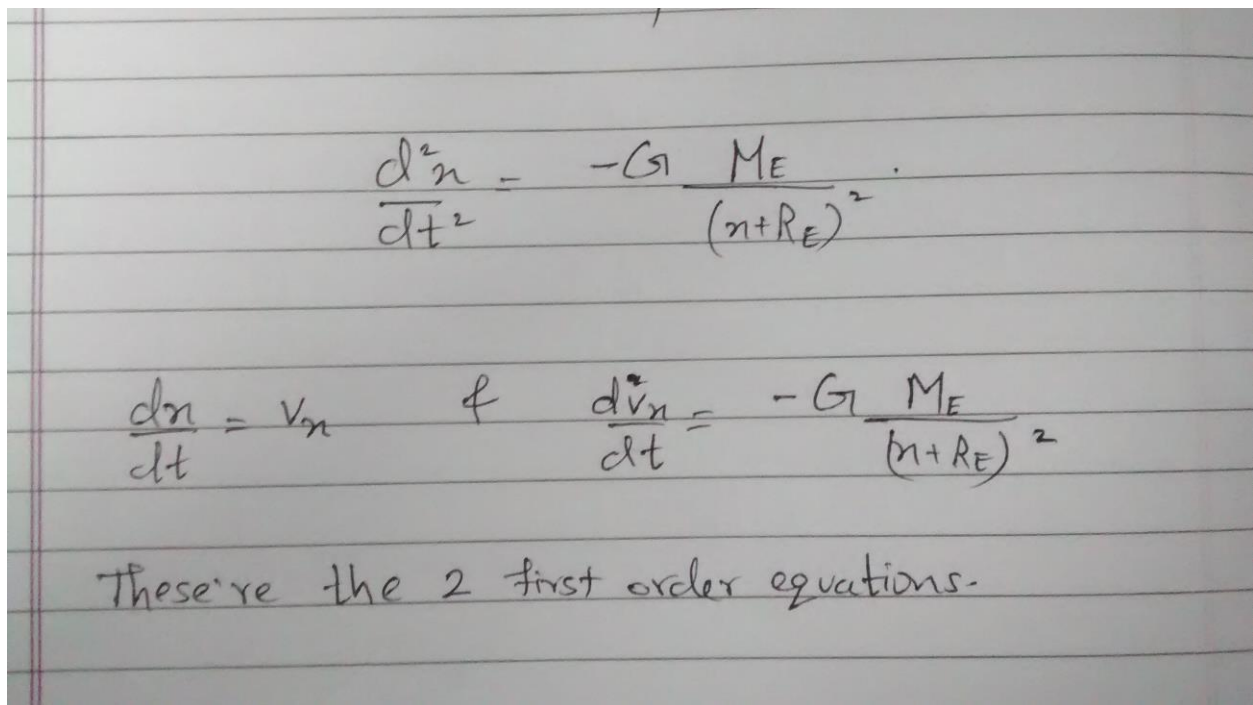 d²x/dt² = -G M_E/(x+R_E)².
dx/dt = v_x & d²v_x/dt = -G M_E/(x+R_E)²
These're the 2 first order equations.